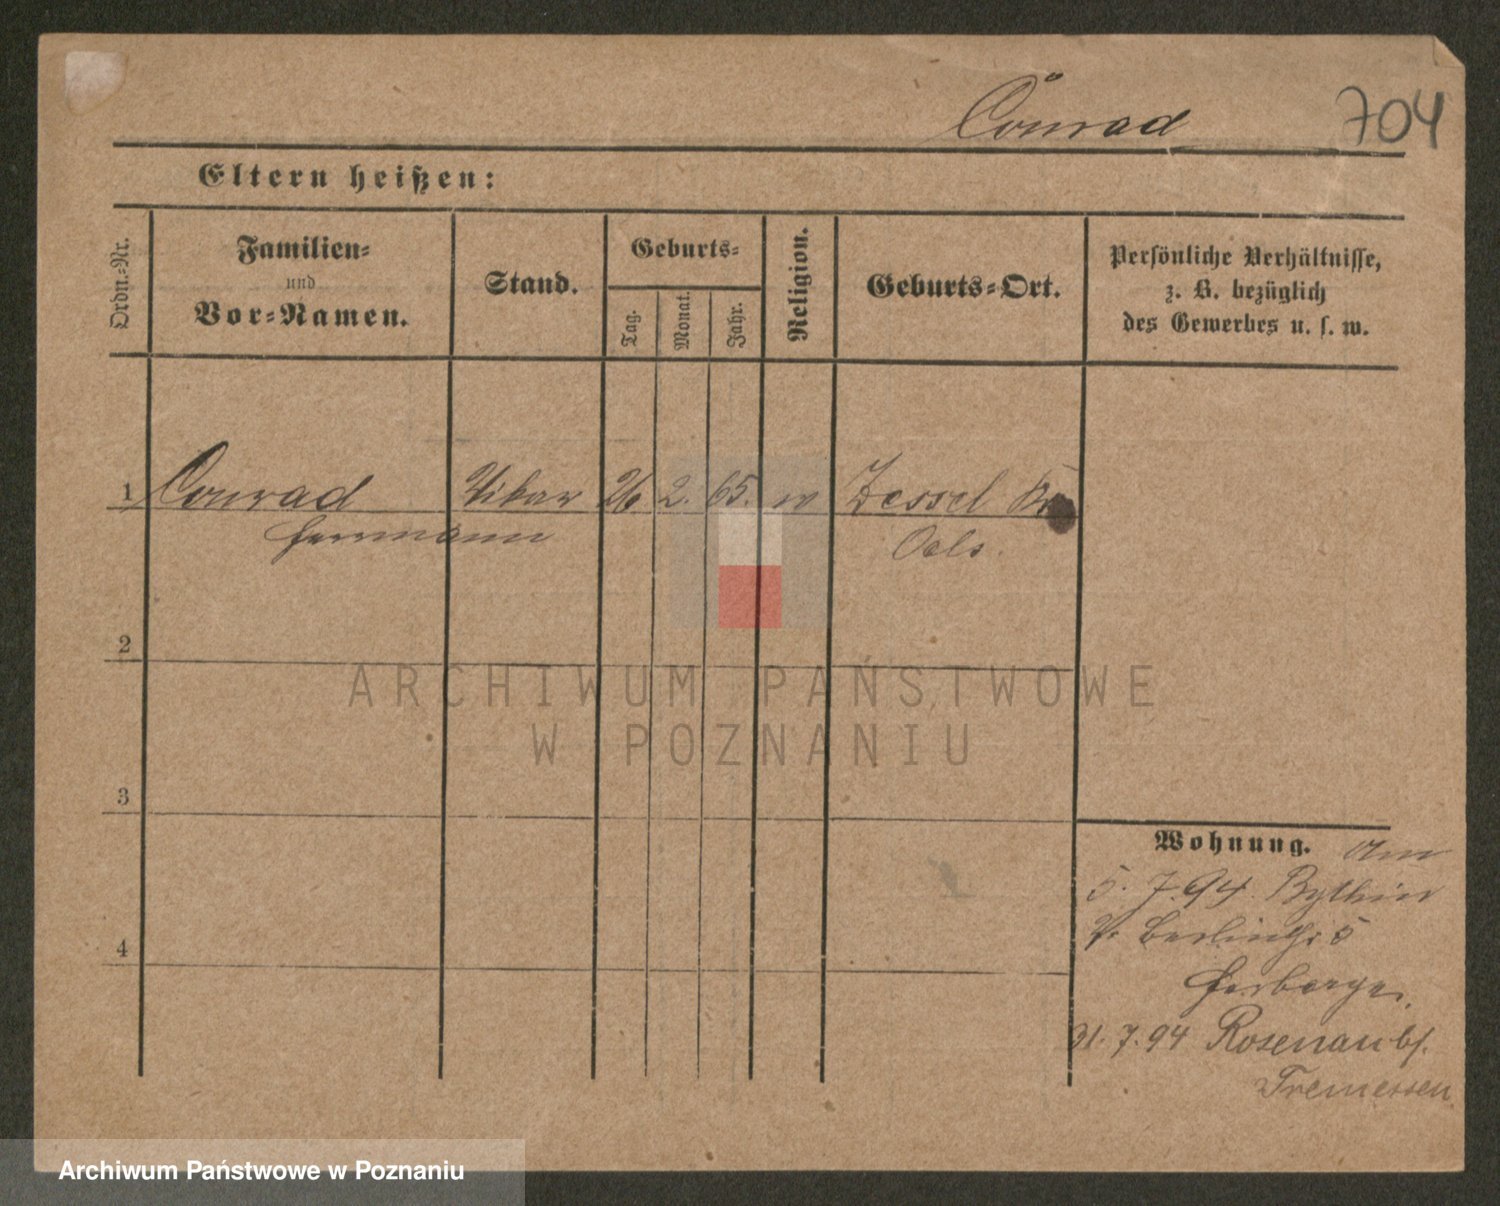 Conrad 704
Eltern heißen:
Ordn.-Nr.
Familien-
und
Vor-Namen.
Stand.
Geburts-
Tag.
Monat.
Jahr.
Religion.
Geburts-Ort.
Persönliche Verhältnisse,
z. B. bezüglich
des Gewerbes u. s. w.
1 Conrad Vikar 26 2. 65. Zessel Kr
Herrmann Oels.
2
3
4
ARCHIWUM PAŃSTWOWE
W POZNANIU
Wohnung. Am
5. 7. 94. Bythin
5
Herberge.
31. 7. 94 Rosenau b/.
Tremessen
Archiwum Państwowe w Poznaniu